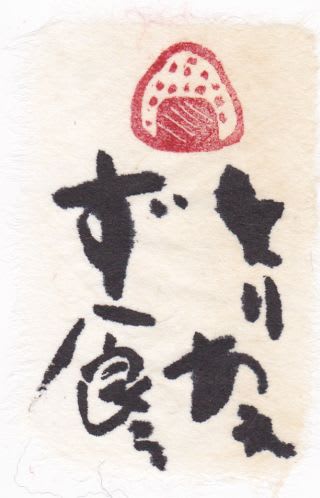 とりあえ
ず一食を